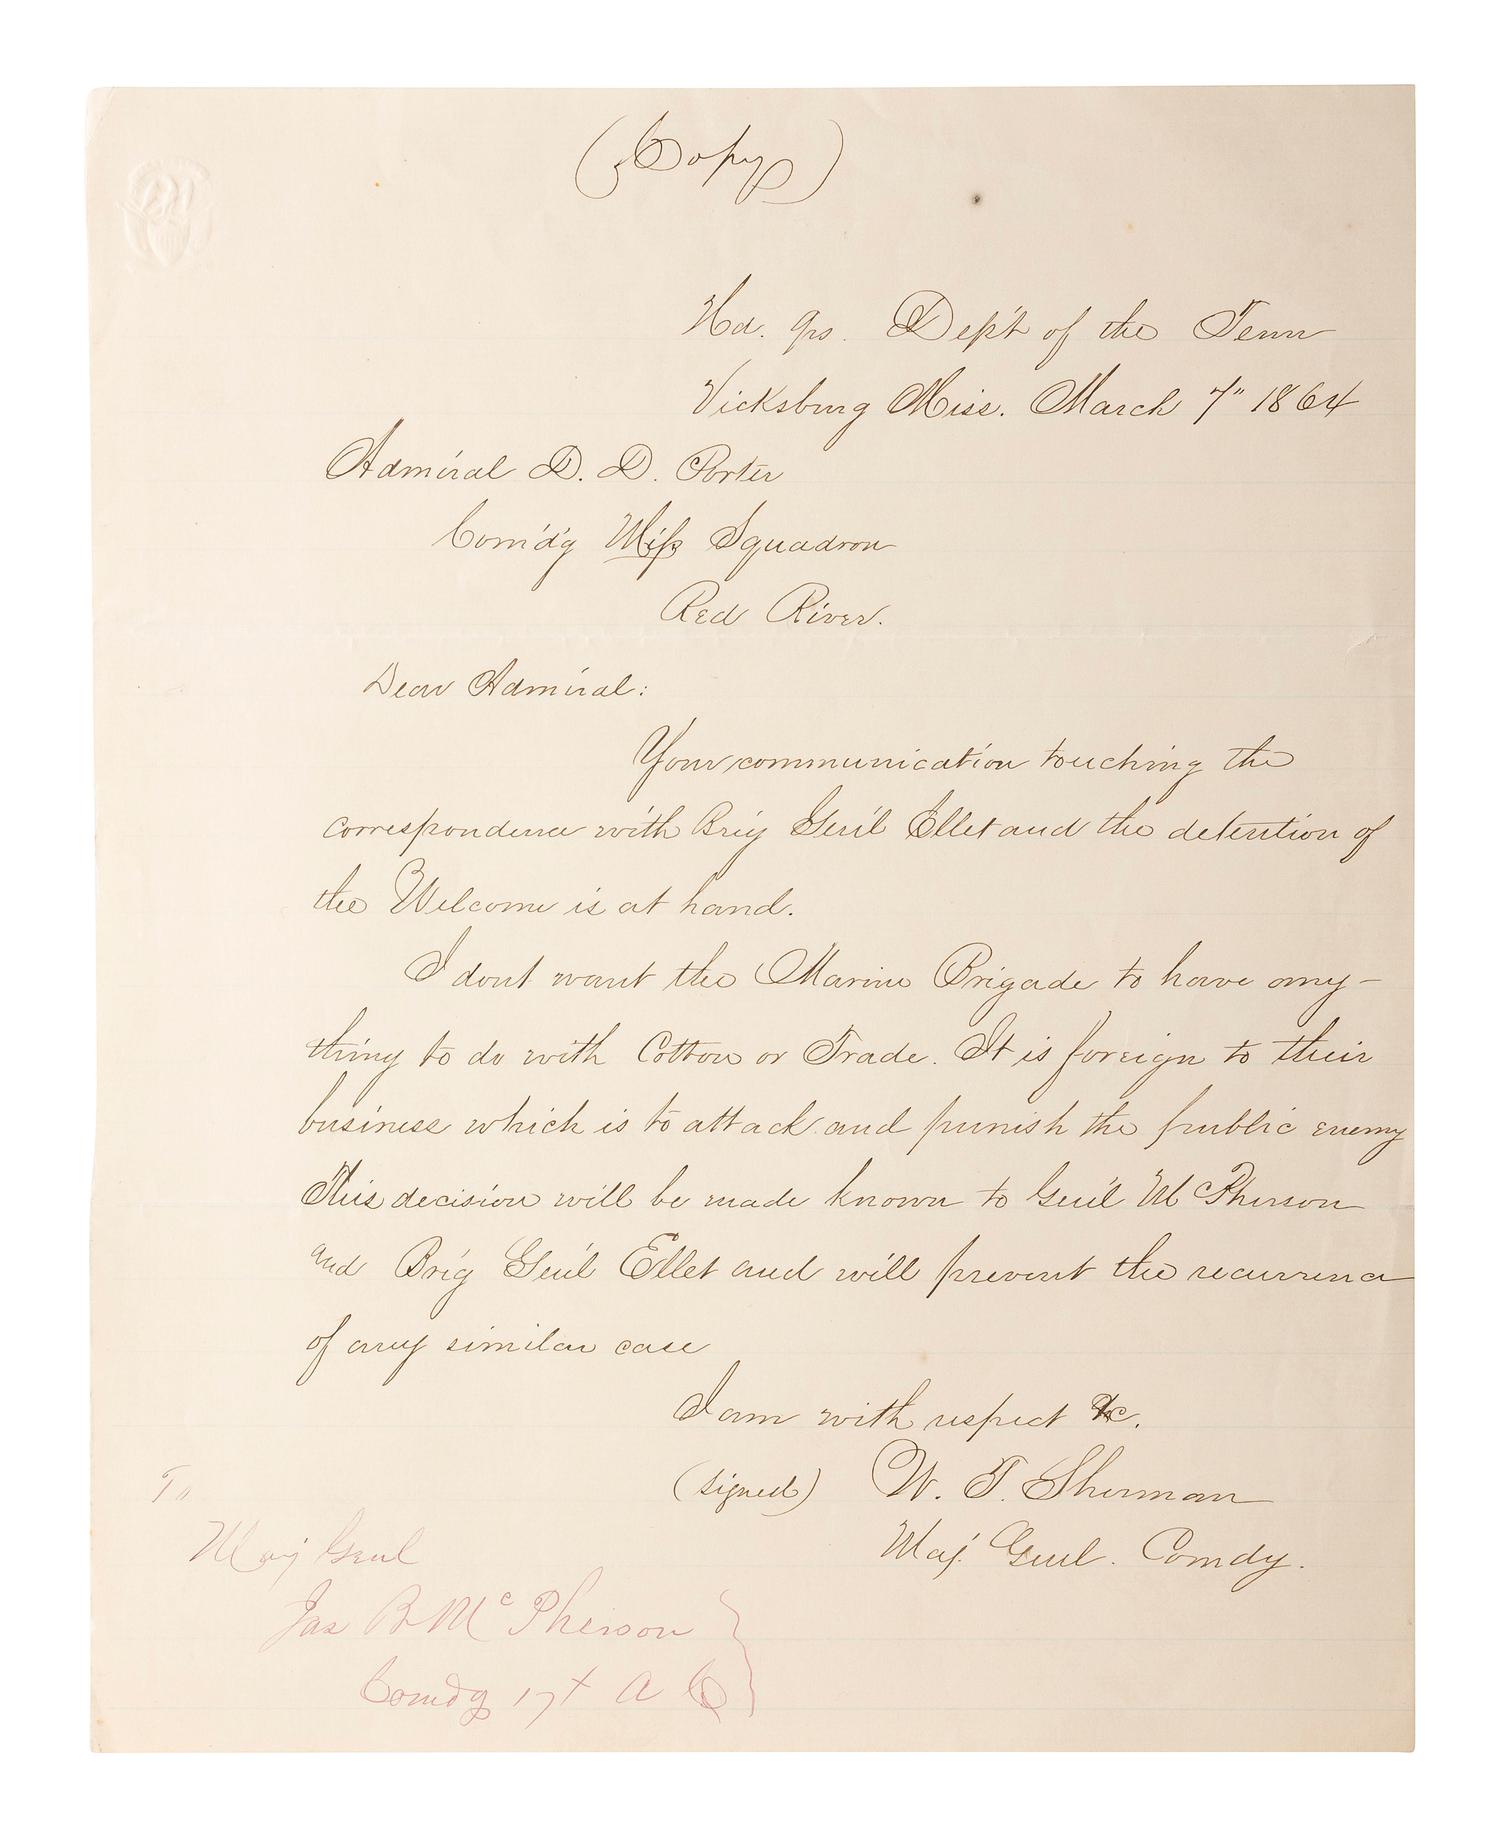 (Copy)
Hd. Qrs. Dep't of the Tenn
Vicksburg Miss. March 7" 1864
Admiral D. D. Porter
Com'd'g Miss Squadron
Red River.
Dear Admiral:
Your communication touching the
correspondence with Brig Gen'l Ellet and the detention of
the Welcome is at hand.
I dont want the Marine Brigade to have any-
thing to do with Cotton or Trade. It is foreign to their
business which is to attack and punish the public enemy
This decision will be made known to Gen'l McPherson
and Brig Gen'l Ellet and will prevent the recurrence
of any similar case
I am with respect &c.
(signed) W. T. Sherman
Maj. Genl. Comdg.
To
Maj Genl
Jas B McPherson
Comdg 17t A C